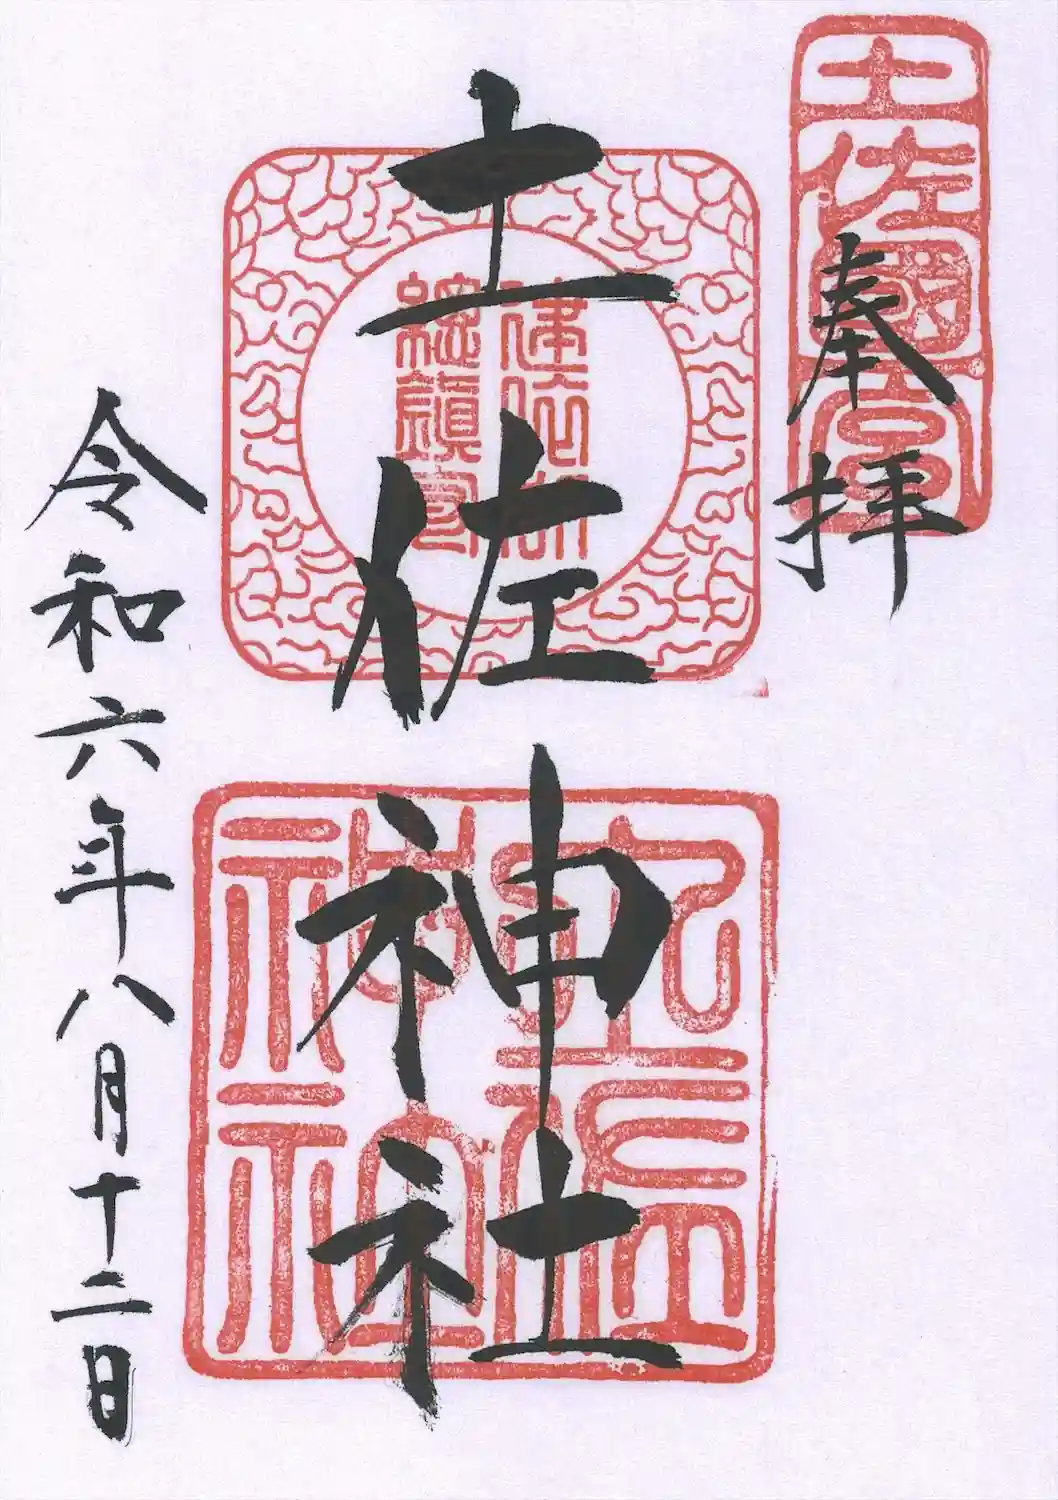 土佐國一宮
奉拝
建依別
總鎮守
土佐神社
土佐
神社
令和六年八月十二日